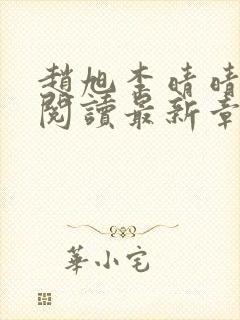 趙旭李晴晴
閱讀最新章
華小宅